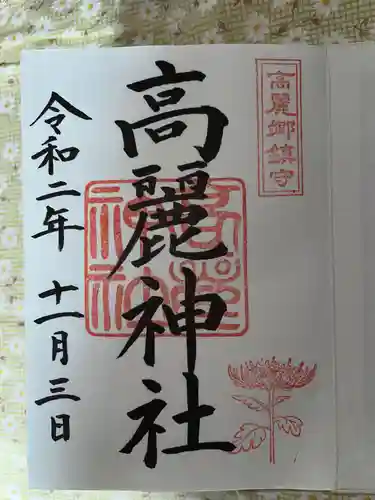 高麗郷鎮守
高麗神社
高麗神社
令和二年 十一月三日